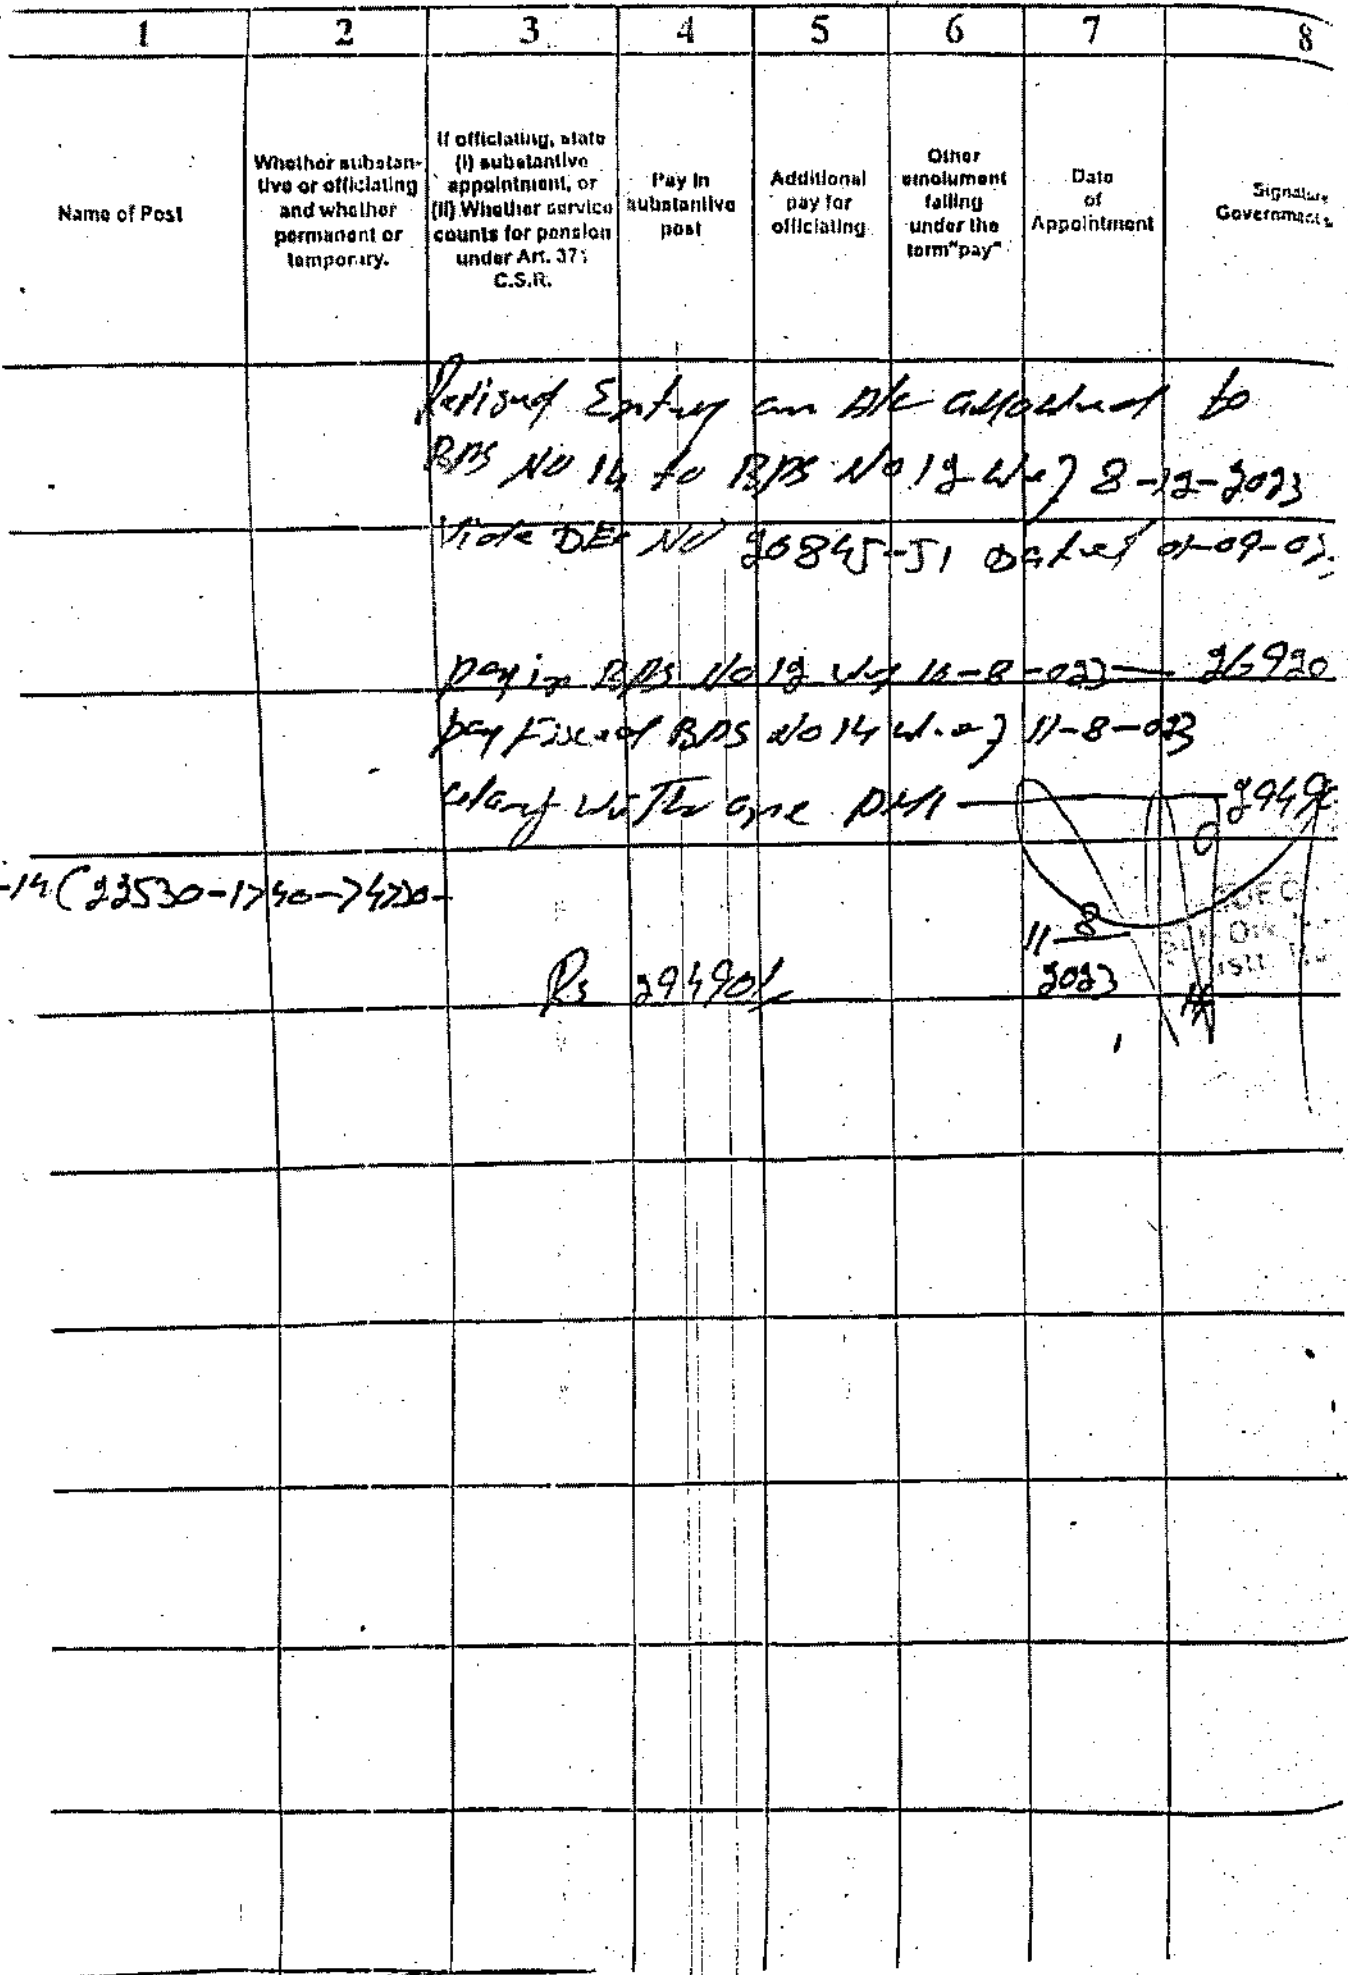 1 2 3 4 5 6 7 8
Name of Post
Whether substan-
tive or officiating
and whether
permanent or
temporary.
If officiating, state
(i) substantive
appointment, or
(ii) Whether service
counts for pension
under Art. 371
C.S.R.
Pay in
substantive
post
Additional
pay for
officiating
Other
emolument
falling
under the
term"pay"
Date
of
Appointment
Signature
Government s
Revised Entry on A/c to
BPS No 14 to BPS No 12 w.e.f 8-12-2023
Vide DEO No 20845-51 Dated 01-09-02
pay in BPS No 12 -8-023 — 26920
pay Fixed BPS No 14 w.e.f 11-8-023
with one PMI — 29490
-14 (22530-1740-74730-
Rs 29490/-
11-8
2023